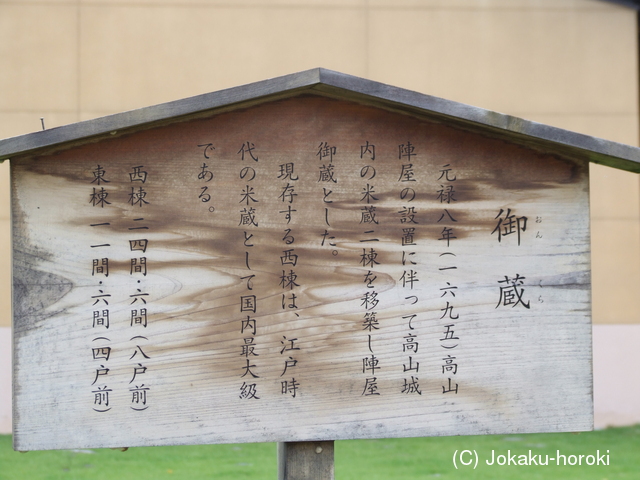 御蔵
おん くら
元禄八年(一六九五)高山
陣屋の設置に伴って高山城
内の米蔵二棟を移築し陣屋
御蔵とした。
現存する西棟は、江戸時
代の米蔵として国内最大級
である。
西棟 二四間・六間(八戸前)
東棟 一一間・六間(四戸前)
(C) Jokaku-horoki